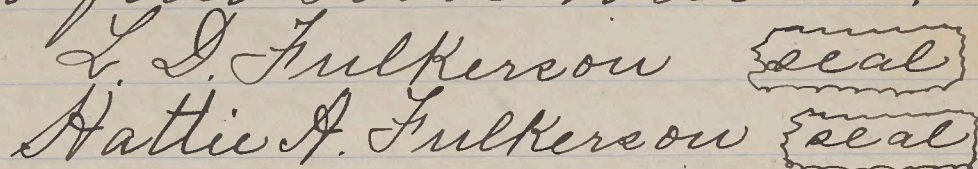 L. D. Fulkerson seal
Hattie A. Fulkerson seal